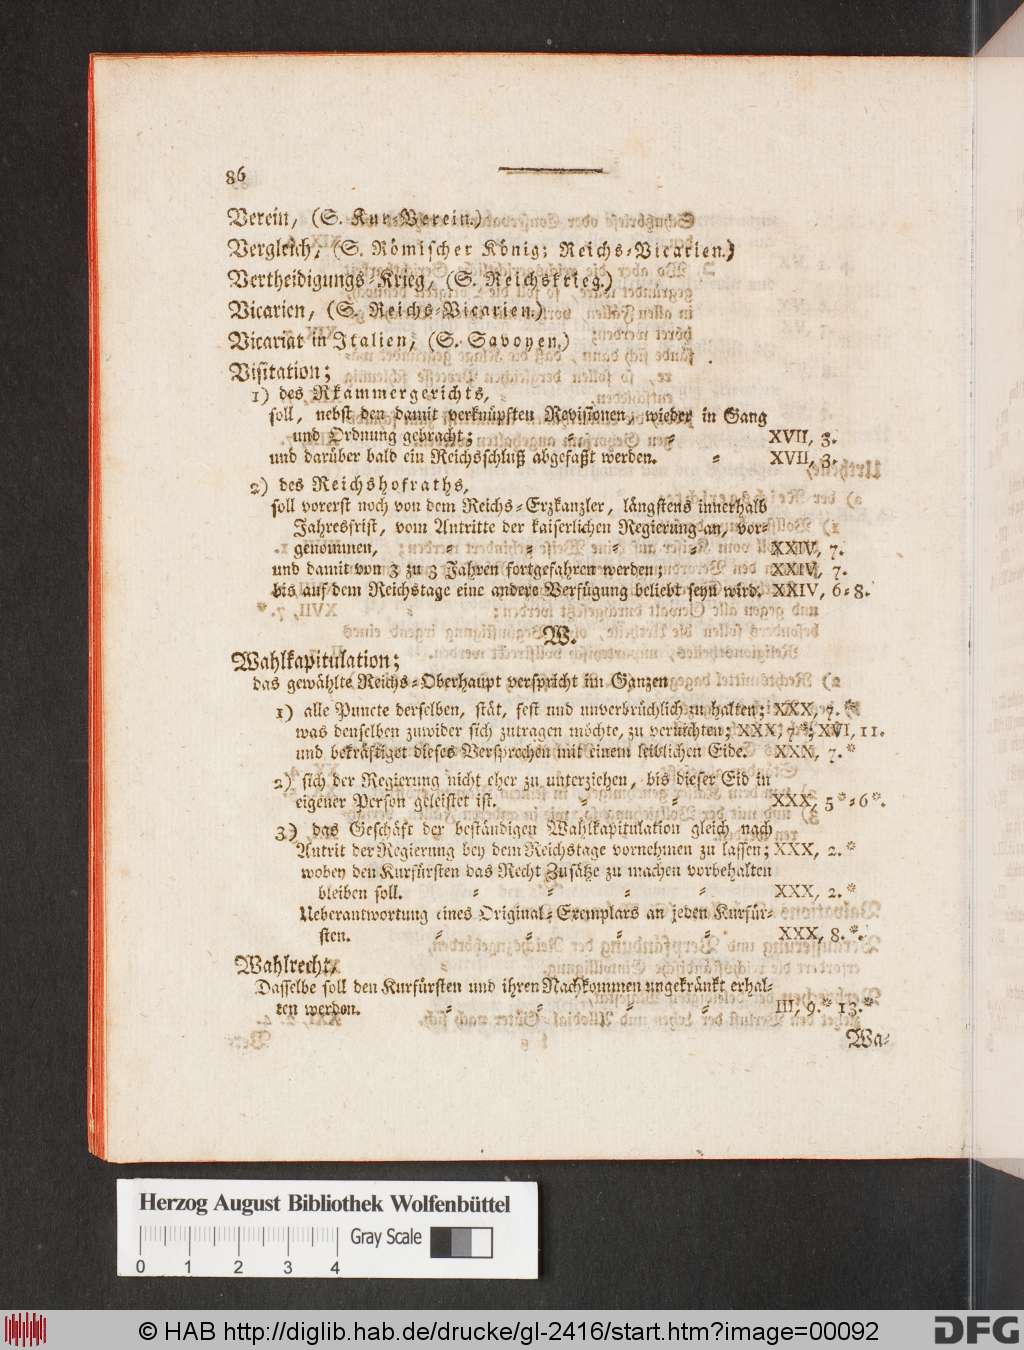 86
Verein, (S. Kur-Verein.)
Vergleich, (S. Römischer König; Reichs-Vicarien.)
Vertheidigungs-Krieg, (S. Reichskrieg.)
Vicarien, (S. Reichs-Vicarien.)
Vicariat in Italien, (S. Savoyen.)
Visitation;
1) des Rkammergerichts,
soll, nebst den damit verknüpften Revisionen, wieder in Gang
und Ordnung gebracht; = = XVII, 3.
und darüber bald ein Reichsschluß abgefaßt werden. = XVII, 3.
2) des Reichshofraths,
soll vorerst noch von dem Reichs-Erzkanzler, längstens innerhalb
Jahresfrist, vom Antritte der kaiserlichen Regierung an, vor-
genommen, = = = = XXIV, 7.
und damit von 3 zu 3 Jahren fortgefahren werden; XXIV, 7.
bis auf dem Reichstage eine andere Verfügung beliebt seyn wird. XXIV, 6-8.
W.
Wahlkapitulation;
das gewählte Reichs-Oberhaupt verspricht im Ganzen
1) alle Puncte derselben, stät, fest und unverbrüchlich zu halten; XXX, 7.*
was denselben zuwider sich zutragen möchte, zu vernichten; XXX, 7*; XVI, 11.
und bekräftiget dieses Versprechen mit einem leiblichen Eide. XXX, 7.*
2) sich der Regierung nicht eher zu unterziehen, bis dieser Eid in
eigener Person geleistet ist. = = XXX, 5*-6*.
3) das Geschäft der beständigen Wahlkapitulation gleich nach
Antrit der Regierung bey dem Reichstage vornehmen zu lassen; XXX, 2.*
wobey den Kurfürsten das Recht Zusätze zu machen vorbehalten
bleiben soll. = = = = XXX, 2.*
Ueberantwortung eines Original-Exemplars an jeden Kurfür-
sten. = = = = XXX, 8.*.
Wahlrecht,
Dasselbe soll den Kurfürsten und ihren Nachkommen ungekränkt erhal-
ten werden. = = = = III, 9.* 13.*
Wa-
Herzog August Bibliothek Wolfenbüttel
Gray Scale
0 1 2 3 4
© HAB http://diglib.hab.de/drucke/gl-2416/start.htm?image=00092
DFG